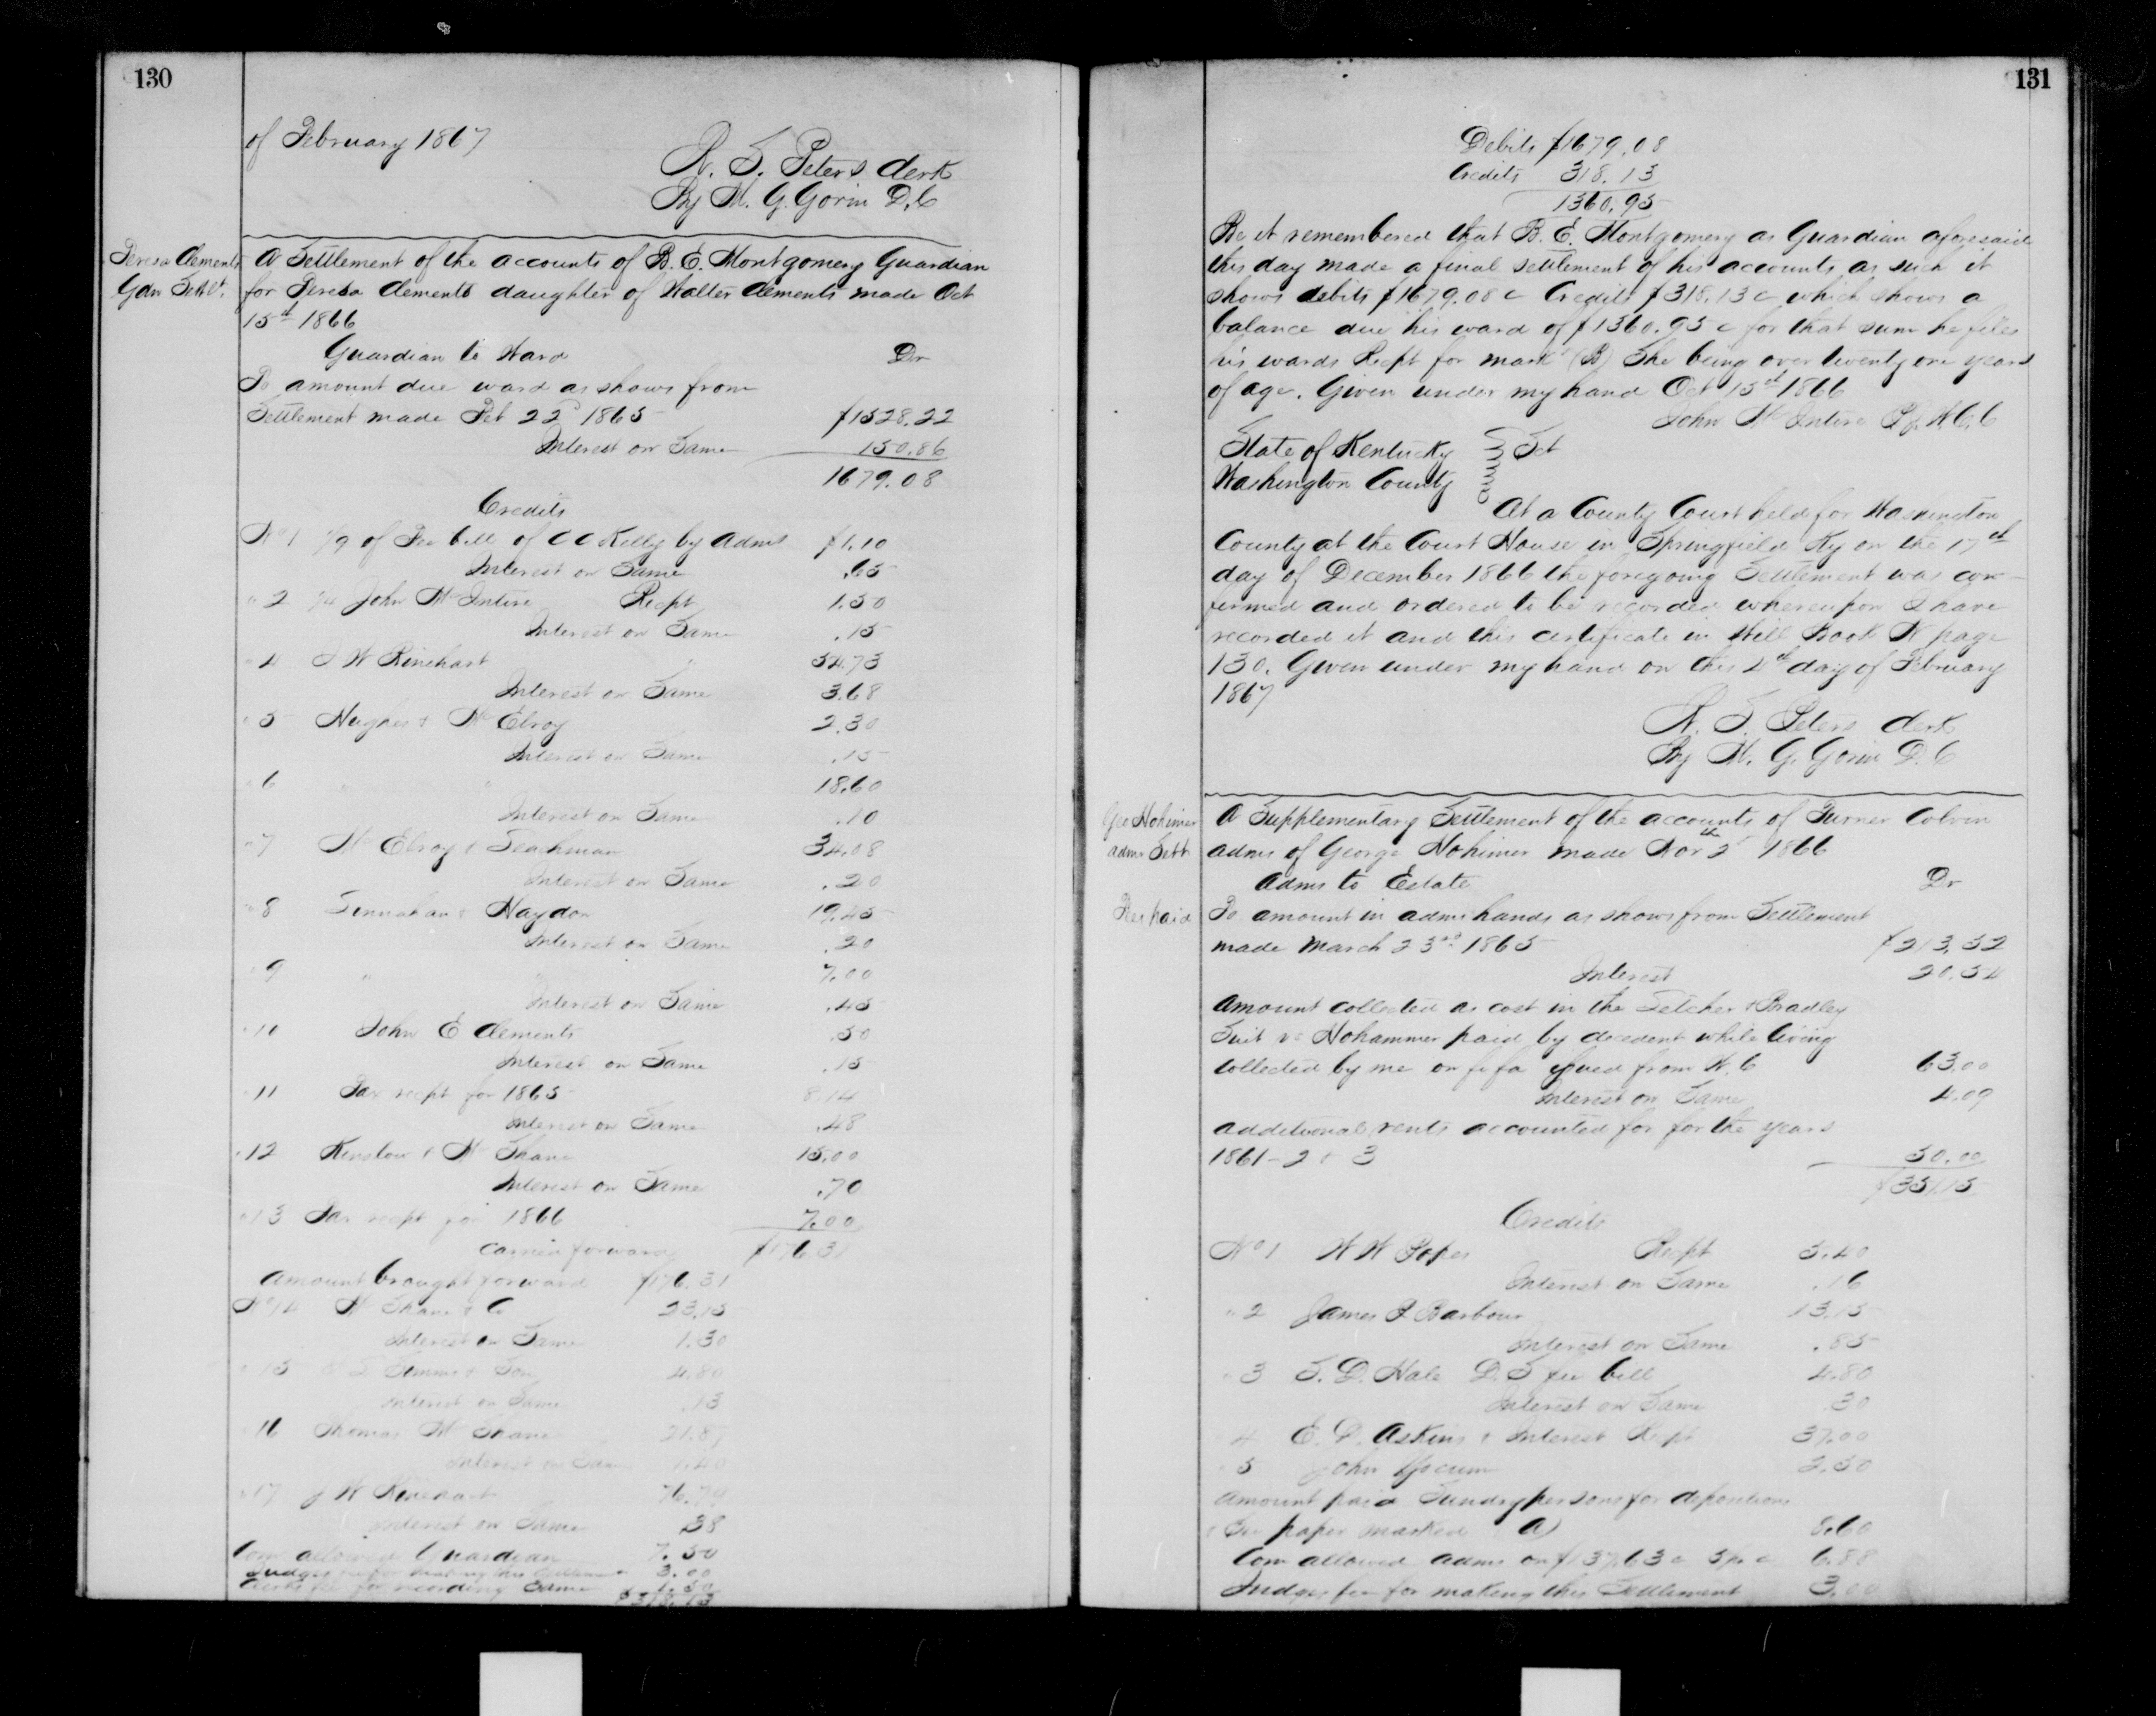 130
of February 1867
R. S. Peters Clerk
By M. G. Gorin D.C
Teresa Clements
Gdn Settlt.
A Settlement of the accounts of B. E. Montgomery Guardian
for Teresa Clements daughter of Walter Clements made Oct
15th 1866
Guardian to Ward Dr
To amount due ward as shows from
Settlement made Feb 22d 1865 $1528.22
Interest on Same 150.86
1679.08
Credits
No 1 1/9 of Fee bill of C C Kelly by Adms $1.10
Interest on Same .65
" 2 John McIntire Recpt 1.50
Interest on Same .15
" 4 J W Rinehart " 54.73
Interest on Same 3.68
" 5 Hughes & McElroy 2.30
Interest on Same .15
" 6 " " 18.60
Interest on Same .10
" 7 McElroy & Seachman 34.08
Interest on Same .20
" 8 & Haydon 19.45
Interest on Same .20
" 9 " 7.00
Interest on Same .45
" 10 John E Clements .50
Interest on Same .15
" 11 Tax recpt for 1865 8.14
Interest on Same .48
" 12 Kinslow & McShane 15.00
Interest on Same .70
" 13 Tax recpt for 1866 7.00
carried forward $176.31
Amount brought forward $176.31
No 14 McShane & Co 23.15
Interest on Same 1.30
" 15 Simms & Son 4.80
Interest on Same .13
" 16 Thomas McShane 21.87
Interest on Same 1.40
" 17 J W Rinehart 76.79
Interest on Same .38
Com allowed Guardian 7.50
Judges fee for making this Settlement 3.00
Clerks fee for recording Same 1.50
$318.13
131
Debits $1679.08
Credits 318.13
1360.95
Be it remembered that B. E. Montgomery as Guardian aforesaid
this day made a final settlement of his accounts as such it
shows debits $1679.08 c Credits $318.13 c which shows a
balance due his ward of $1360.95 c for that sum he files
his wards Recpt for mark (B) She being over twenty one years
of age. Given under my hand Oct 15th 1866
John McIntire P.J.W.C.C
State of Kentucky Sct
Washington County
At a County Court held for Washington
County at the Court House in Springfield Ky on the 17th
day of December 1866 the foregoing Settlement was con-
firmed and ordered to be recorded whereupon I have
recorded it and this certificate in Will Book N page
130. Given under my hand on this 4th day of February
1867
R. S. Peters Clerk
By M. G. Gorin D.C
Geo Hohimer
adms Settt
A Supplementary Settlement of the accounts of Turner Colvin
adms of George Hohimer made Nov 2th 1866
Adms to Estate Dr
Fee paid
To amount in adms hands as shows from Settlement
made March 23rd 1865 $213.52
Interest 20.54
Amount collected as cost in the Letcher & Bradley
Suit vs Hohammer paid by decedent while living
collected by me on fi fa issued from W.C 63.00
Interest on Same 4.09
additional rents accounted for for the years
1861-2 & 3 50.00
$351.15
Credits
No 1 W W Popes Recpt 5.40
Interest on Same .16
" 2 James P Barbour 13.15
Interest on Same .85
" 3 S. D. Hale D.S fee bill 4.80
Interest on Same .30
4 E. D. Askins & Interest Recpt 37.00
" 5 John Yocum 2.50
Amount paid Sundry persons for depositions
See paper marked (A) 8.60
Com allowed adms on $137.63 c 5 pr c 6.88
Judges fee for making this Settlement 3.00